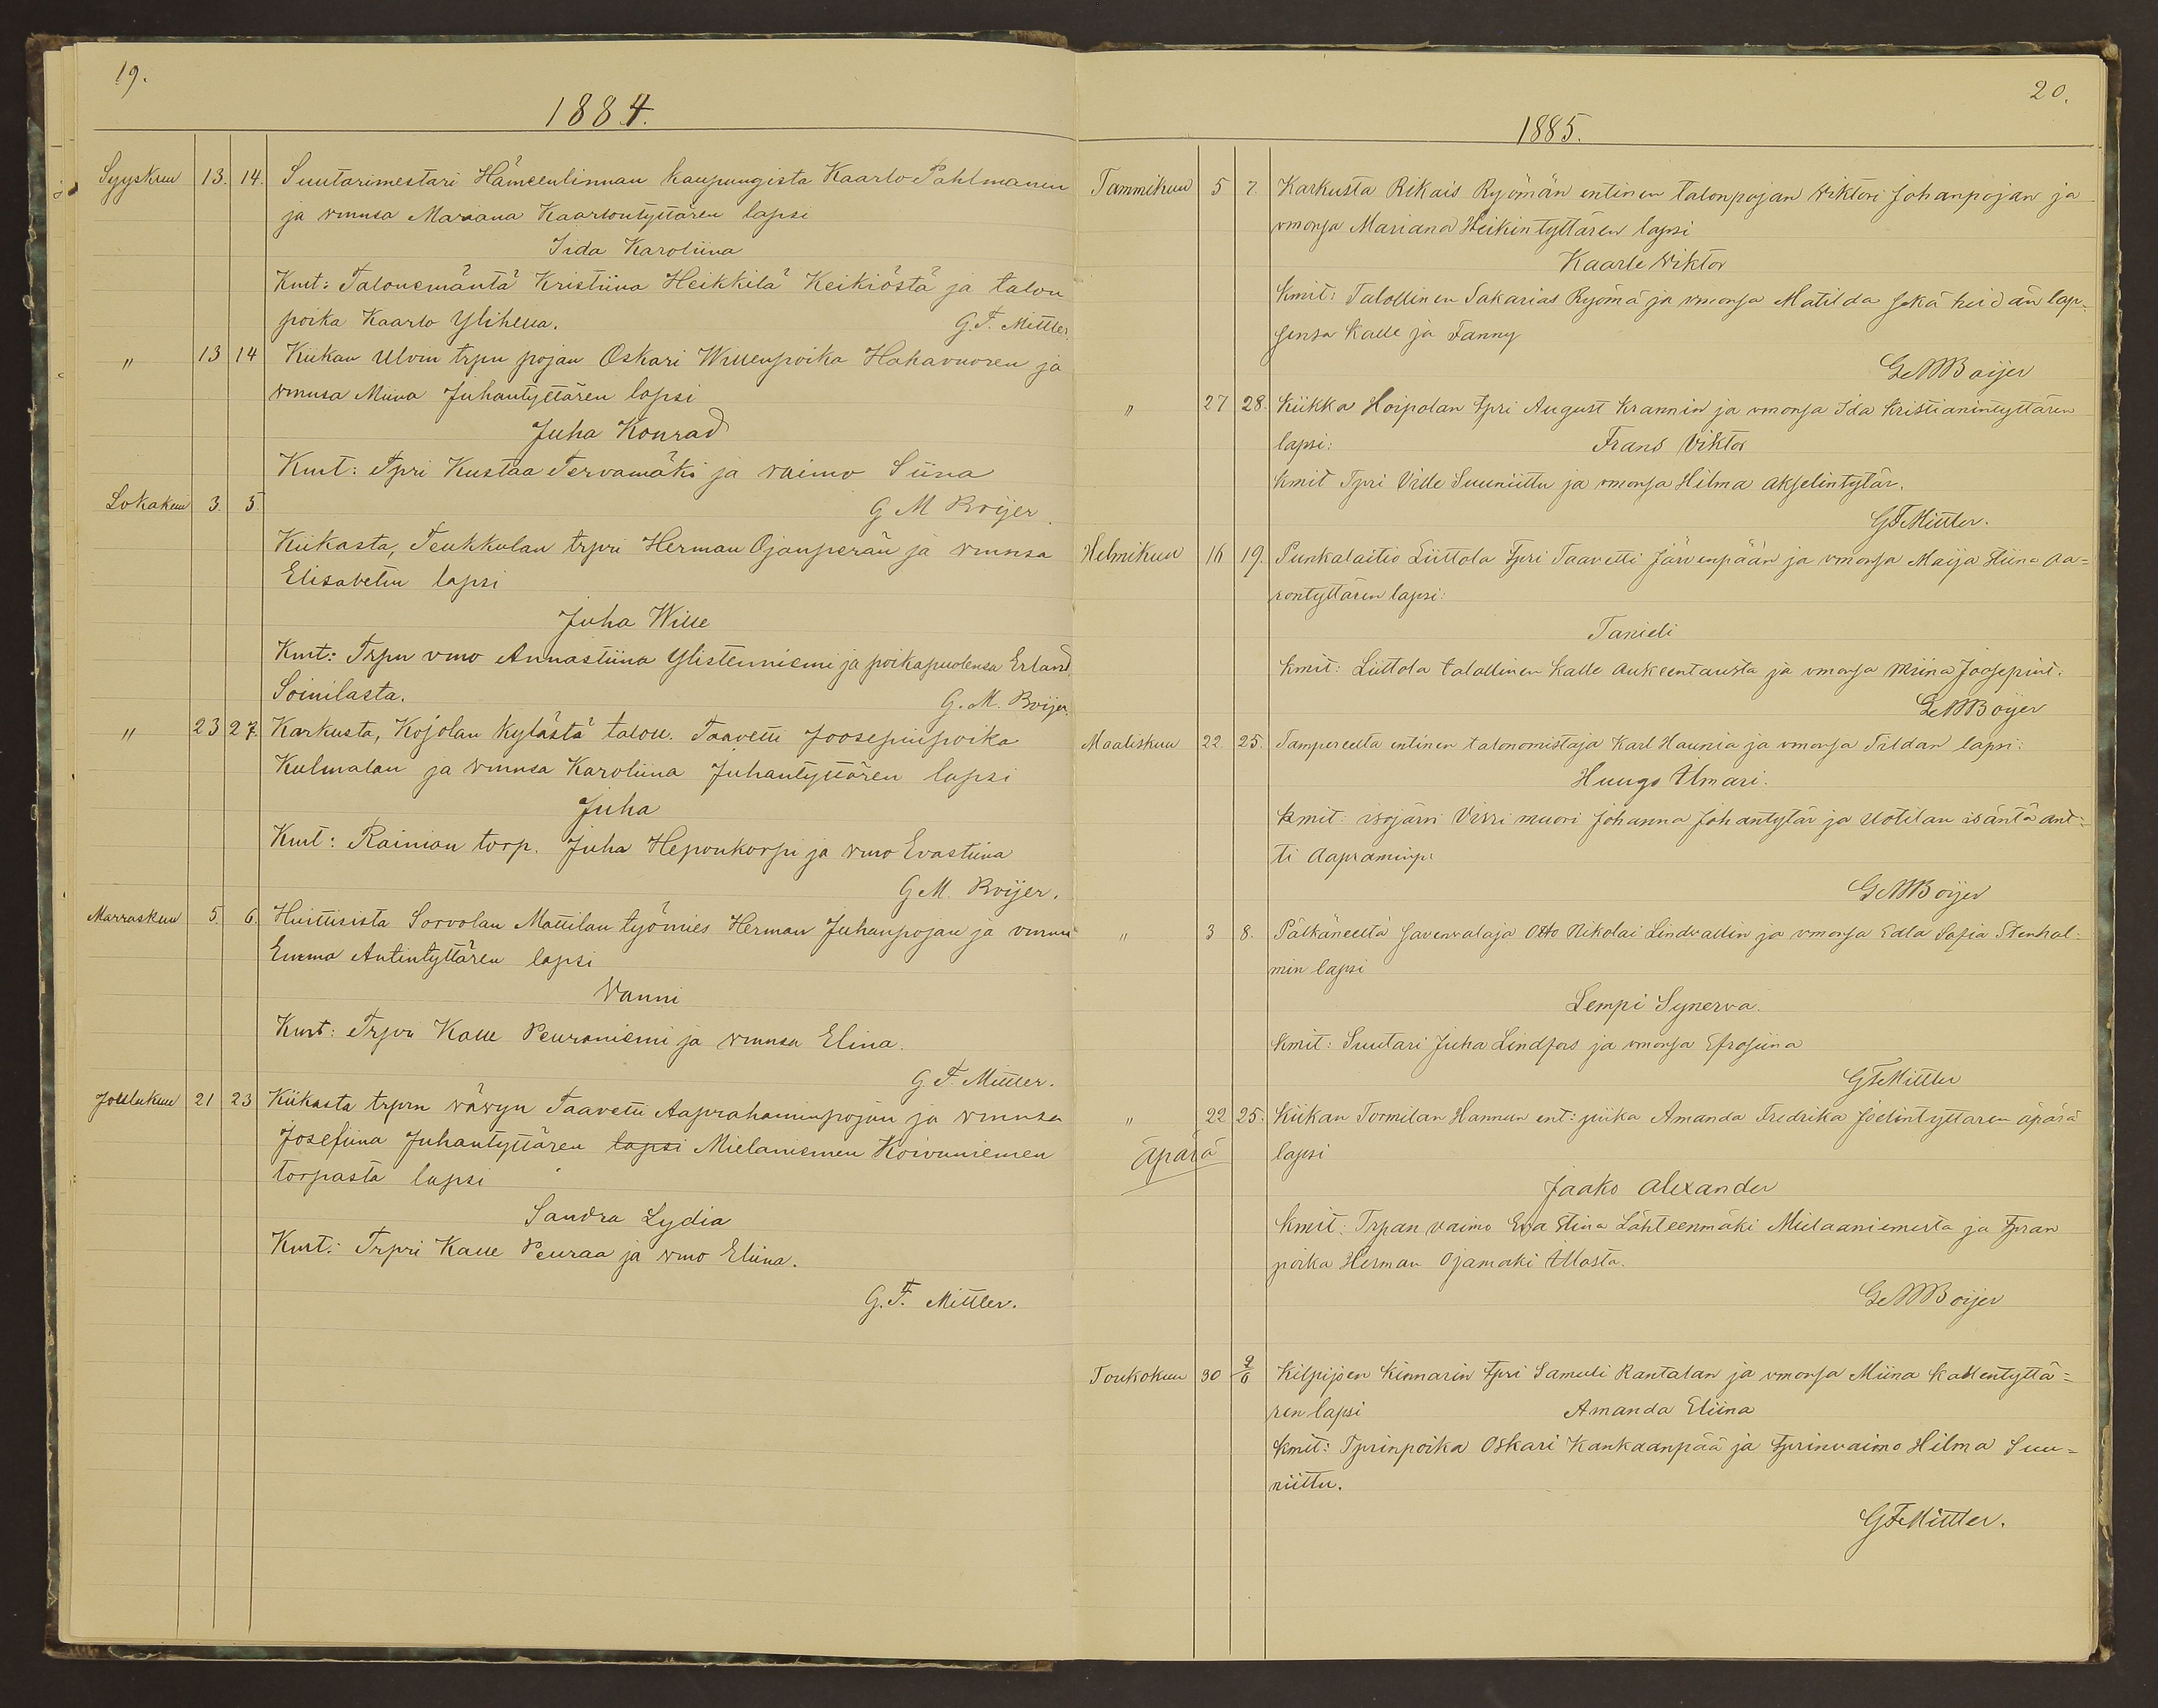 19.
1884.
Syyskuu 13. 14. Suutarimestari Hämeenlinnan kaupungista Kaarlo Pahlmanin
ja vmnsa Mariana Kaarlontyttären lapsi
Iida Karoliina
Kmt: Talonemäntä Kristiina Heikkilä Keikiöstä ja talon
poika Kaarlo Ylihella. G. F. Mittler.
" 13 14 Kiikan Ulvin trpn pojan Oskari Willenpoika Hakavuoren ja
vmnsa Miina Juhantyttären lapsi
Juha Konrad
Kmt: Tpri Kustaa Tervamäki ja vaimo Siina
Lokakuu 3. 5. G M Boijer.
Kiikasta, Teukkulan trpri Herman Ojanperän ja vmnsa
Elisabetin lapsi
Juha Wille
Kmt: Trpn vmo Annastiina Ylistenniemi ja poikapuolensa Erland
Soinilasta. G. M. Boijer.
" 23 27. Karkusta, Kojolan kylästä talou. Taavetti Joosepinpoika
Kulmalan ja vmnsa Karoliina Juhantyttären lapsi
Juha
Kmt: Rainion torp. Juha Heponkorpi ja vmo Evastiina
G M. Boijer.
Marraskuu 5. 6. Huittisista Sorvolan Mattilan työmies Herman Juhanpojan ja vmnsa
Emma Antintyttären lapsi
Vanni
Kmt: Trpri Kalle Peuraniemi ja vmnsa Elina.
G F. Mittler.
Joulukuu 21 23 Kiikasta trprn vävyn Taavetti Aaprahaminpojan ja vmnsa
Josefiina Juhantyttären lapsi Mielaniemen Koivuniemen
torpasta lapsi
Sandra Lydia
Kmt: Trpri Kalle Peuraa ja vmo Eliina.
G. F. Mittler.
20.
1885.
Tammikuu 5 7. Karkusta Rikais Ryömän entinen talonpojan Wiktori Johanpojan ja
vmonsa Mariana Heikintyttären lapsi
Kaarle Wiktor
Kmit: Talollinen Sakarias Ryömä ja vmonsa Matilda sekä heidän lap-
sensa Kalle ja Fanny
G M Boijer
" 27 28. Kiikka Hoipolan tpri August Krannin ja vmonsa Ida Kristianintyttären
lapsi: Frans Viktor
Kmit Tpri Ville Suuniittu ja vmonsa Hilma Akselintytär.
G F Mittler.
Helmikuu 16 19. Punkalaitio Liittola tpri Taavetti Järvenpään ja vmonsa Maija Stiina Aa=
rontyttären lapsi:
Tanieli
Kmit: Liittola talollinen Kalle Aukeentausta ja vmonsa Miina Joosepint.
G M Boijer
Maaliskuu 22 25. Tampereelta entinen talonomistaja Karl Haunia ja vmonsa Tildan lapsi:
Huugo Ilmari.
Kmit: isojärvi Virri muori Johanna Johantytär ja Uotilan isäntä Ant=
ti Aapraminp:
G M Boijer
" 3 8. Pälkäneeltä savenvalaja Otto Nikolai Lindvallin ja vmonsa Edla Sofia Stenhol-
min lapsi
Lempi Synerva.
Kmit: Suutari Juha Lindfors ja vmonsa Efrosiina
G F Mittler
" 22 25. Kiikan Tormilan Hannun ent: piika Amanda Fredrika Joelintyttaren äpärä
Äpärä lapsi
Jaako Alexander
Kmit: Trpan vaimo Eva Stina Lähteenmäki Mielaaniemestä ja tpran
poika Herman Ojamaki Illosta.
G M Boijer
Toukokuu 30 9/6 Kilpijoen Kinnarin tpri Samuli Rantalan ja vmonsa Miina Kallentyttä=
ren lapsi Amanda Eliina
Kmit: Tprinpoika Oskari Kankaanpää ja tprinvaimo Hilma Suu=
niittu.
G F Mittler.